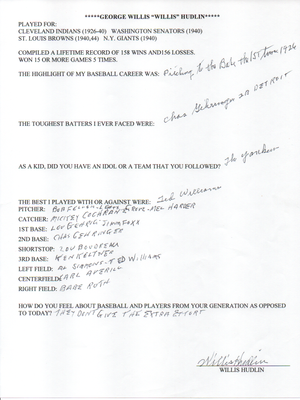 *****GEORGE WILLIS "WILLIS" HUDLIN*****
PLAYED FOR:
CLEVELAND INDIANS (1926-40) WASHINGTON SENATORS (1940)
ST. LOUIS BROWNS (1940,44) N.Y. GIANTS (1940)
COMPILED A LIFETIME RECORD OF 158 WINS AND156 LOSSES.
WON 15 OR MORE GAMES 5 TIMES.
THE HIGHLIGHT OF MY BASEBALL CAREER WAS: Pitching to the Babe 1926
THE TOUGHEST BATTERS I EVER FACED WERE: Chas Gehringer DETROIT
AS A KID, DID YOU HAVE AN IDOL OR A TEAM THAT YOU FOLLOWED? The Yankees
THE BEST I PLAYED WITH OR AGAINST WERE: Ted Williams
PITCHER: BOB FELLER - LEFTY GROVE - MEL HARDER
CATCHER: MICKEY COCHRAN
1ST BASE: LOU GEHRIG JIM FOXX
2ND BASE: CHAS GEHRINGER
SHORTSTOP: LOU BOUDREAU
3RD BASE: KEN KELTNER
LEFT FIELD: AL SIMMONS - TED WILLIAMS
CENTERFIELD: EARL AVERILL
RIGHT FIELD: BABE RUTH
HOW DO YOU FEEL ABOUT BASEBALL AND PLAYERS FROM YOUR GENERATION AS OPPOSED
TO TODAY? THEY DONT GIVE THE EXTRA EFFORT
Willis Hudlin
WILLIS HUDLIN